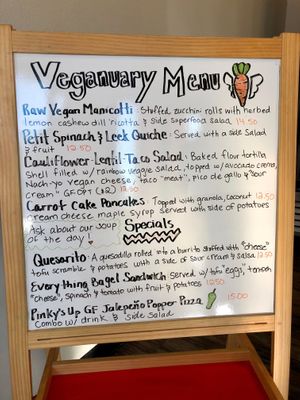 Veganuary Menu
Raw Vegan Manicotti: Stuffed zucchini rolls with herbed
lemon cashew dill "ricotta" & side superfood salad 14.50
Petit Spinach & Leek Quiche: Served with a side Salad
& fruit 12.50
Cauliflower-Lentil Taco Salad: Baked flour tortilla
Shell filled w/ rainbow veggie salad, topped w/ avocado crema,
Nach-yo vegan cheese, taco "meat", pico de gallo & "sour
cream" 12.50
Carrot Cake Pancakes Topped with granola, coconut 12.50
cream cheese maple syrup served with side of potatoes
Ask about our soup
of the day! Specials
Quesarito: A quesadilla rolled into a burrito stuffed with "cheese"
tofu scramble & potatoes with a side of sour cream & salsa 12.50
Everything Bagel Sandwich Served w/ tofu "eggs",
"cheese", spinach & tomato with fruit & potatoes 12.50
Pinky's Up GF Jalepeño Popper Pizza 15.00
Combo w/ drink & side salad